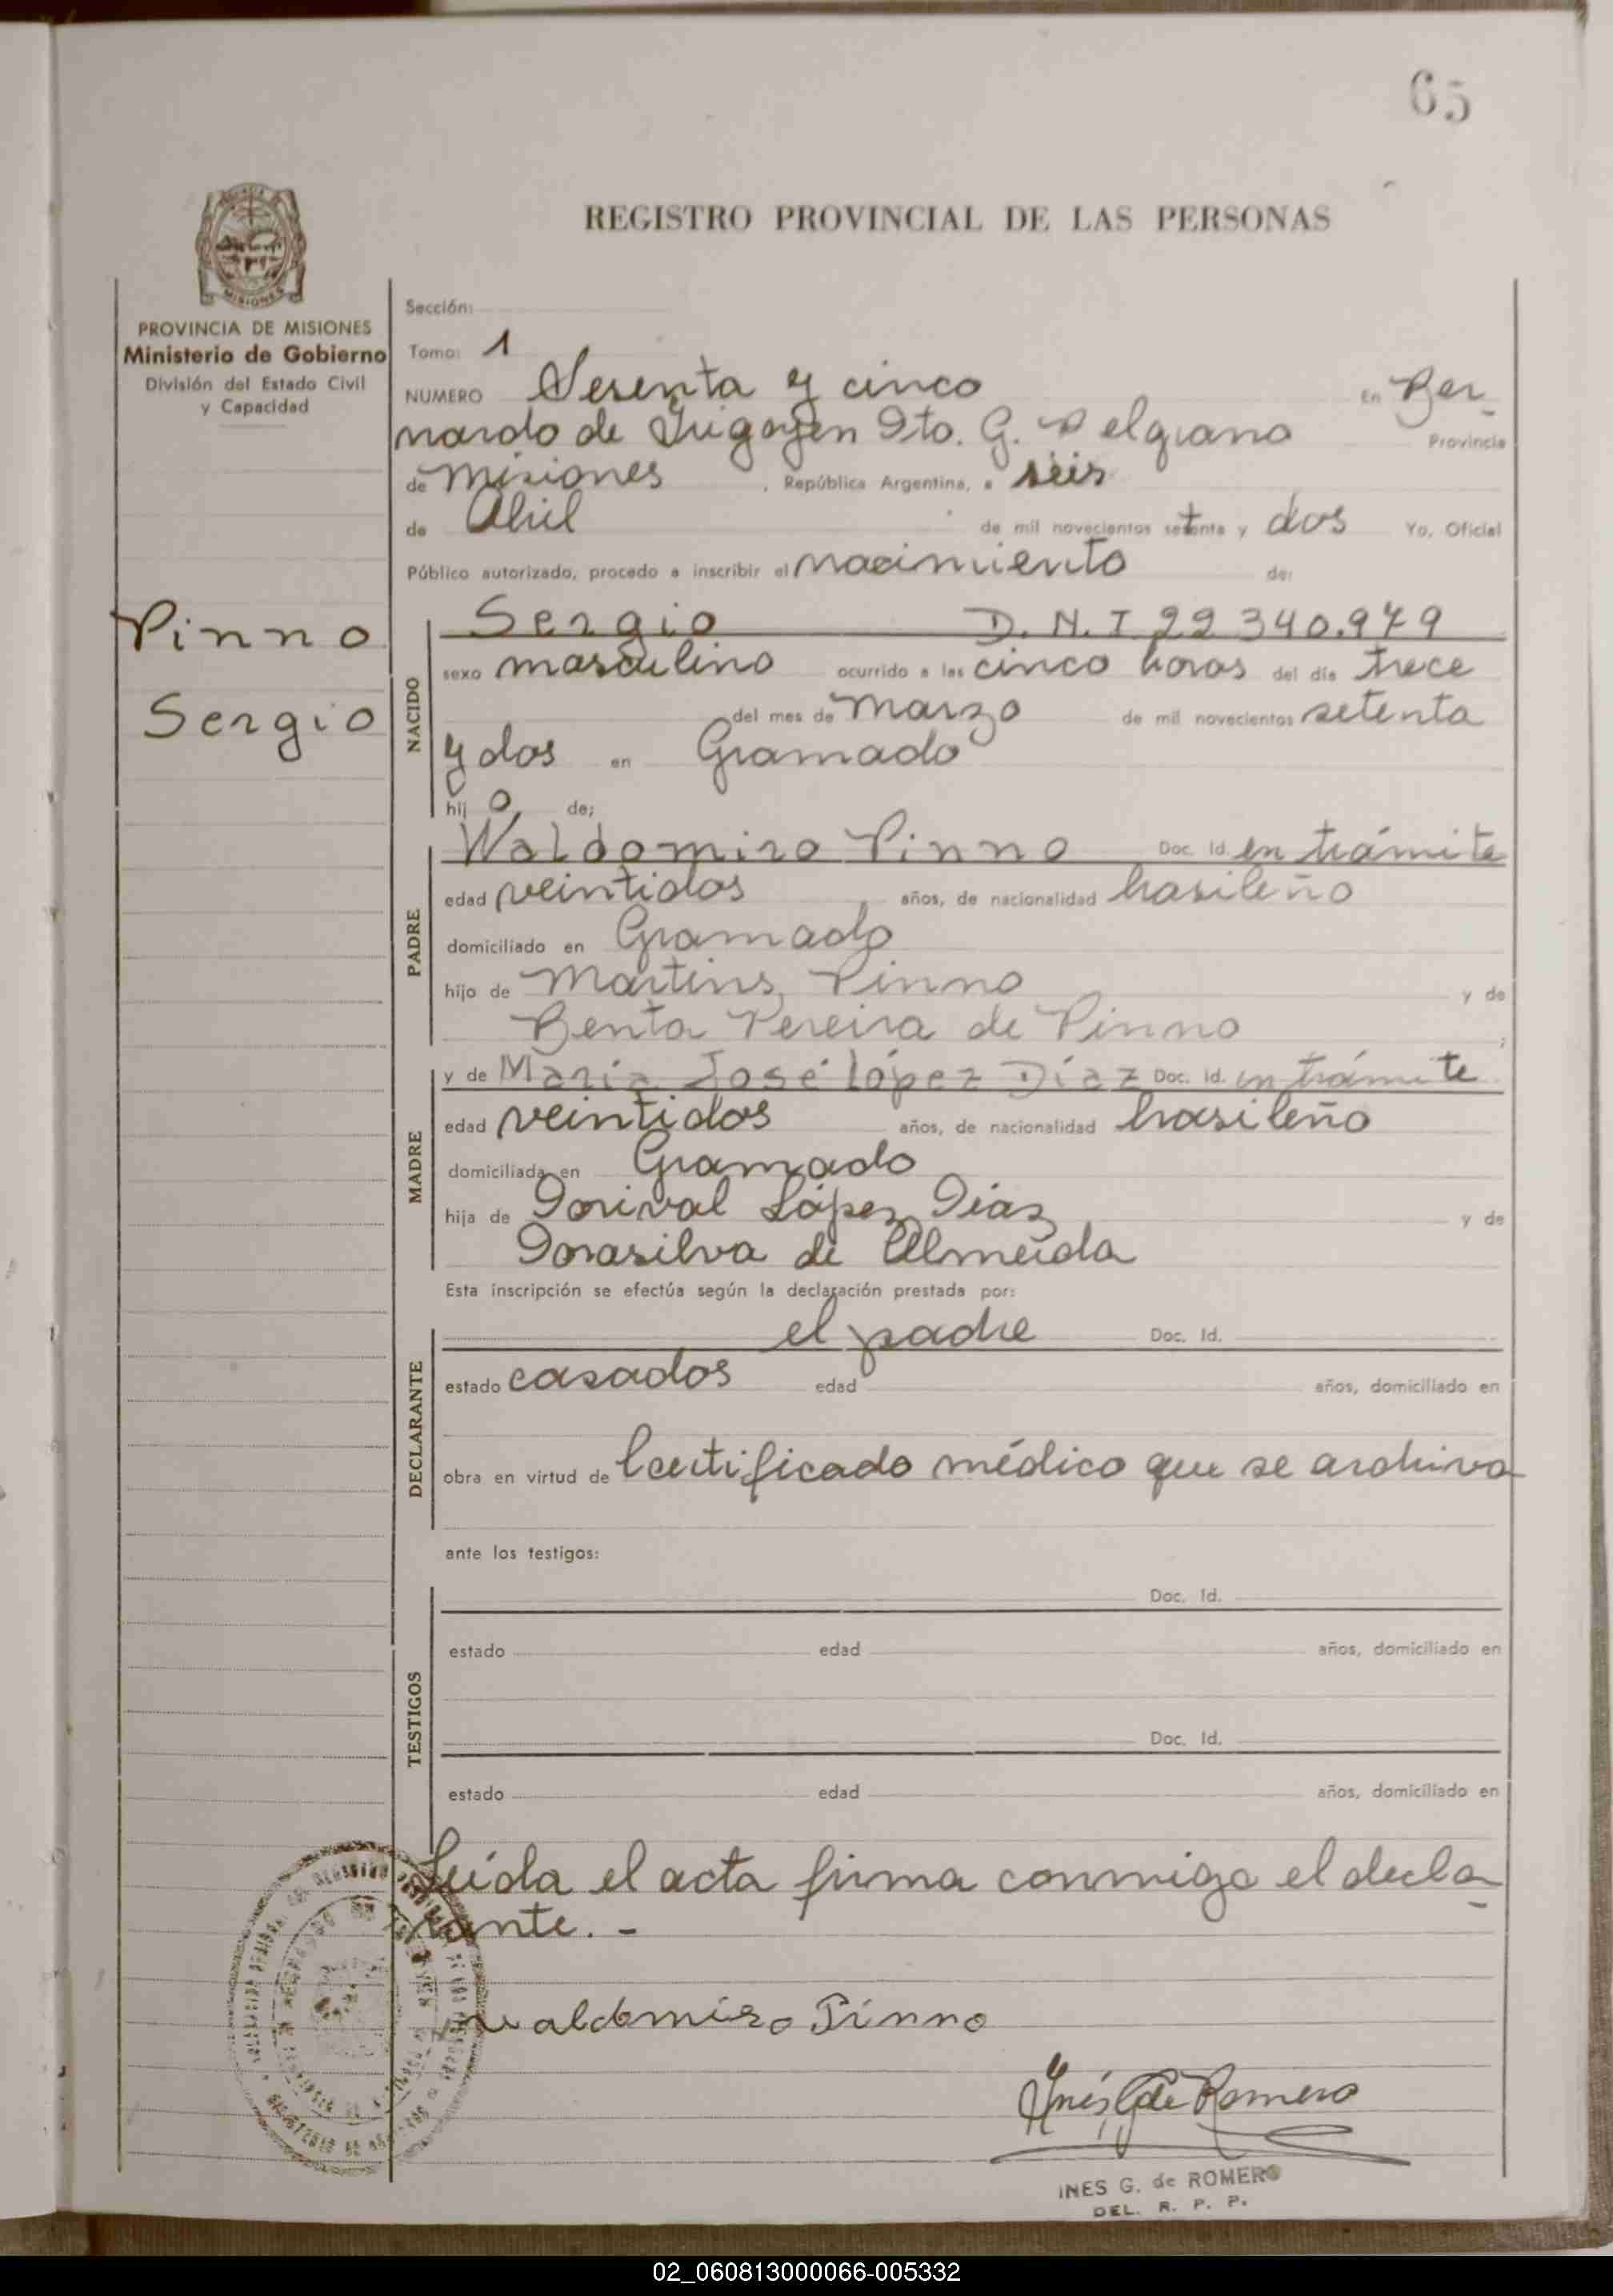 65
REGISTRO PROVINCIAL DE LAS PERSONAS
MISIONES
PROVINCIA DE MISIONES
Ministerio de Gobierno
División del Estado Civil
y Capacidad
Sección:
Tomo: 1
NUMERO Sesenta y cinco En Ber-
nardo de Irigoyen Dto. G. Belgrano Provincia
de Misiones, República Argentina, a seis
de Abril de mil novecientos setenta y dos Yo, Oficial
Público autorizado, procedo a inscribir el nacimiento de:
Pinno
Sergio
NACIDO
Sergio D.N.I 22 340.979
sexo masculino ocurrido a las cinco horas del día trece
del mes de Marzo de mil novecientos setenta
y dos en Gramado
hij o de;
PADRE
Waldomiro Pinno Doc. Id. en trámite
edad veintidos años, de nacionalidad brasileño
domiciliado en Gramado
hijo de Martins Pinno y de
Benta Pereira de Pinno ;
MADRE
y de María José López Díaz Doc. Id. en trámite
edad veintidos años, de nacionalidad brasileño
domiciliada en Gramado
hija de Dorival López Diaz y de
Dorasilva de Almeida
Esta inscripción se efectúa según la declaración prestada por:
DECLARANTE
el padre Doc. Id.
estado casados edad años, domiciliado en
obra en virtud de Certificado médico que se archiva
ante los testigos:
TESTIGOS
Doc. Id.
estado edad años, domiciliado en
Doc. Id.
estado edad años, domiciliado en
Leída el acta firma conmigo el decla-
rante. -
Waldomiro Pinno
Inés G de Romero
INES G. de ROMERO
DEL. R. P. P.
02_060813000066-005332